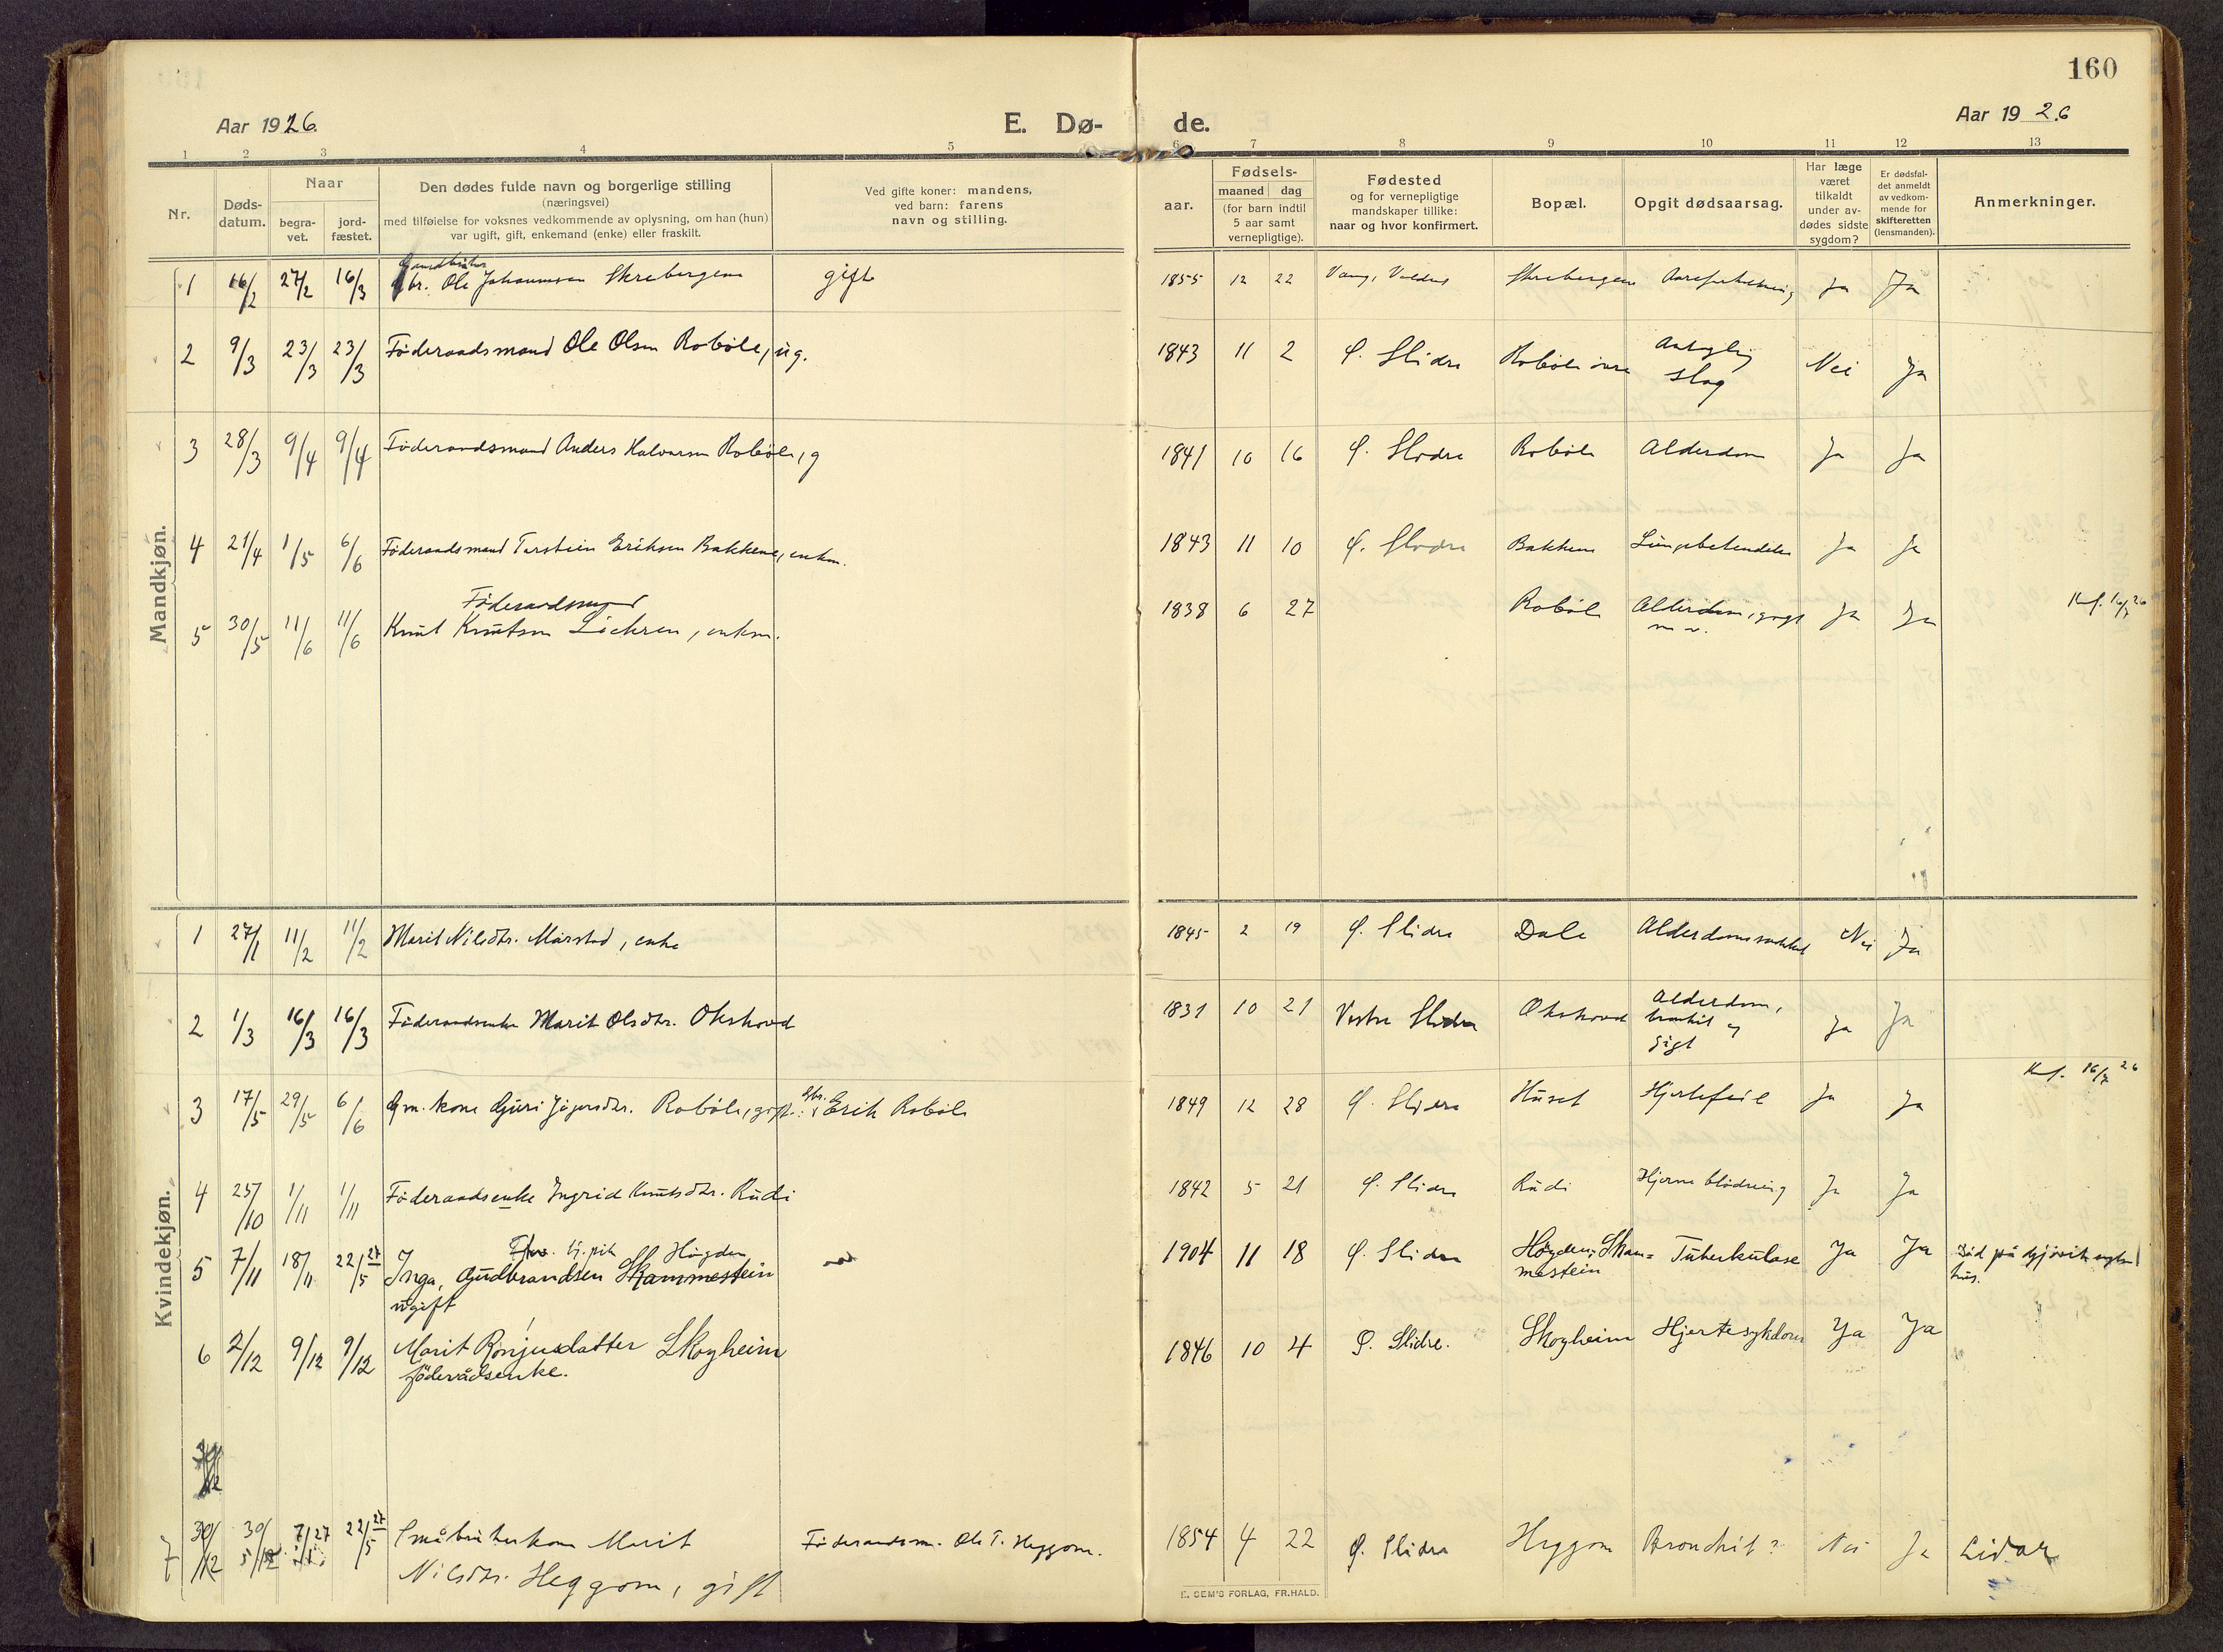 160
Aar 1926.
E. Dø-
de.
Aar 192.6
1 2 3 4 5 6 7 8 9 10 11 12 13
Nr.
Døds-
datum.
Naar
begra-
vet.
jord-
fæstet.
Den dødes fulde navn og borgerlige stilling
(næringsvei)
med tilføielse for voksnes vedkommende av oplysning, om han (hun)
var ugift, gift, enkemand (enke) eller fraskilt.
Ved gifte koner: mandens,
ved barn: farens
navn og stilling.
aar.
Fødsels-
maaned dag
(for barn indtil
5 aar samt
vernepligtige).
Fødested
og for vernepligtige
mandskaper tillike:
naar og hvor konfirmert.
Bopæl.
Opgit dødsaarsag.
Har læge
været
tilkaldt
under av-
dødes sidste
sygdom?
Er dødsfal-
det anmeldt
av vedkom-
mende for
skifteretten
(lensmanden).
Anmerkninger.
Mandkjøn.
Gaardbruker
1 16/2 27/2 16/3 Ole Johannesen Skrebergene gift 1855 12 22 Vang, Valdres Skrebergene Aareforkalkning Ja Ja
2 9/3 23/3 23/3 Føderaadsmand Ole Olsen Robøle, ug. 1843 11 2 Ø. Slidre Robøle øvre slag Nei Ja
3 28/3 9/4 9/4 Føderaadsmand Anders Halvorsen Robøle, g 1841 10 16 Ø. Slidre Robøle Alderdom Ja Ja
4 21/4 1/5 6/6 Føderaadsmand Torstein Eriksen Bakkene, enkm. 1843 11 10 Ø. Slidre Bakkene Lungebetendelse Ja Ja
Føderaadsmand
5 30/5 11/6 11/6 Knut Knutsen Løkren, enkm. 1838 6 27 Robøle Alderdom, gigt m. v. Ja Ja
Kvindekjøn.
1 27/1 11/2 11/2 Marit Nilsdtr. Mørstad, enke 1845 2 19 Ø. Slidre Dale Alderdomssvakhet Nei Ja
2 1/3 16/3 16/3 Føderaadsenke Marit Olsdtr. Okshovd 1831 10 21 Vestre Slidre Okshovd Alderdom, bronkit og gigt Ja Ja
3 17/5 29/5 6/6 Gm. kone Guri Jøgersdtr. Robøle, gift. Gbr. Erik Robøle 1849 12 28 Ø. Slidre Huset Hjertefeil Ja Ja
4 25/10 1/11 1/11 Føderaadsenke Ingrid Knutsdtr. Rudi 1842 5 21 Ø. Slidre Rudi Hjerneblødning Ja Ja
Høgden
5 7/11 18/11 22/5 27 Inga, Gudbrandsen Skammestein 1904 11 18 Ø. Slidre Høgden, Skam= Tuberkulose Ja Ja Død på Gjøvik syke=
ugift mestein hus.
6 2/12 9/12 9/12 Marit Ronjusdatter Skogheim 1846 10 4 Ø. Slidre. Skogheim Hjertesykdom Ja Ja
føderådsenke.
7 30/12 22/5 27 Småbrukerkone Marit Føderaadsm. Ole T. Heggom. 1854 4 22 Ø. Slidre Heggom Bronchit? Nei Ja Lidar
Nilsdtr. Heggom, gift
E. SEM'S FORLAG, FR.HALD.